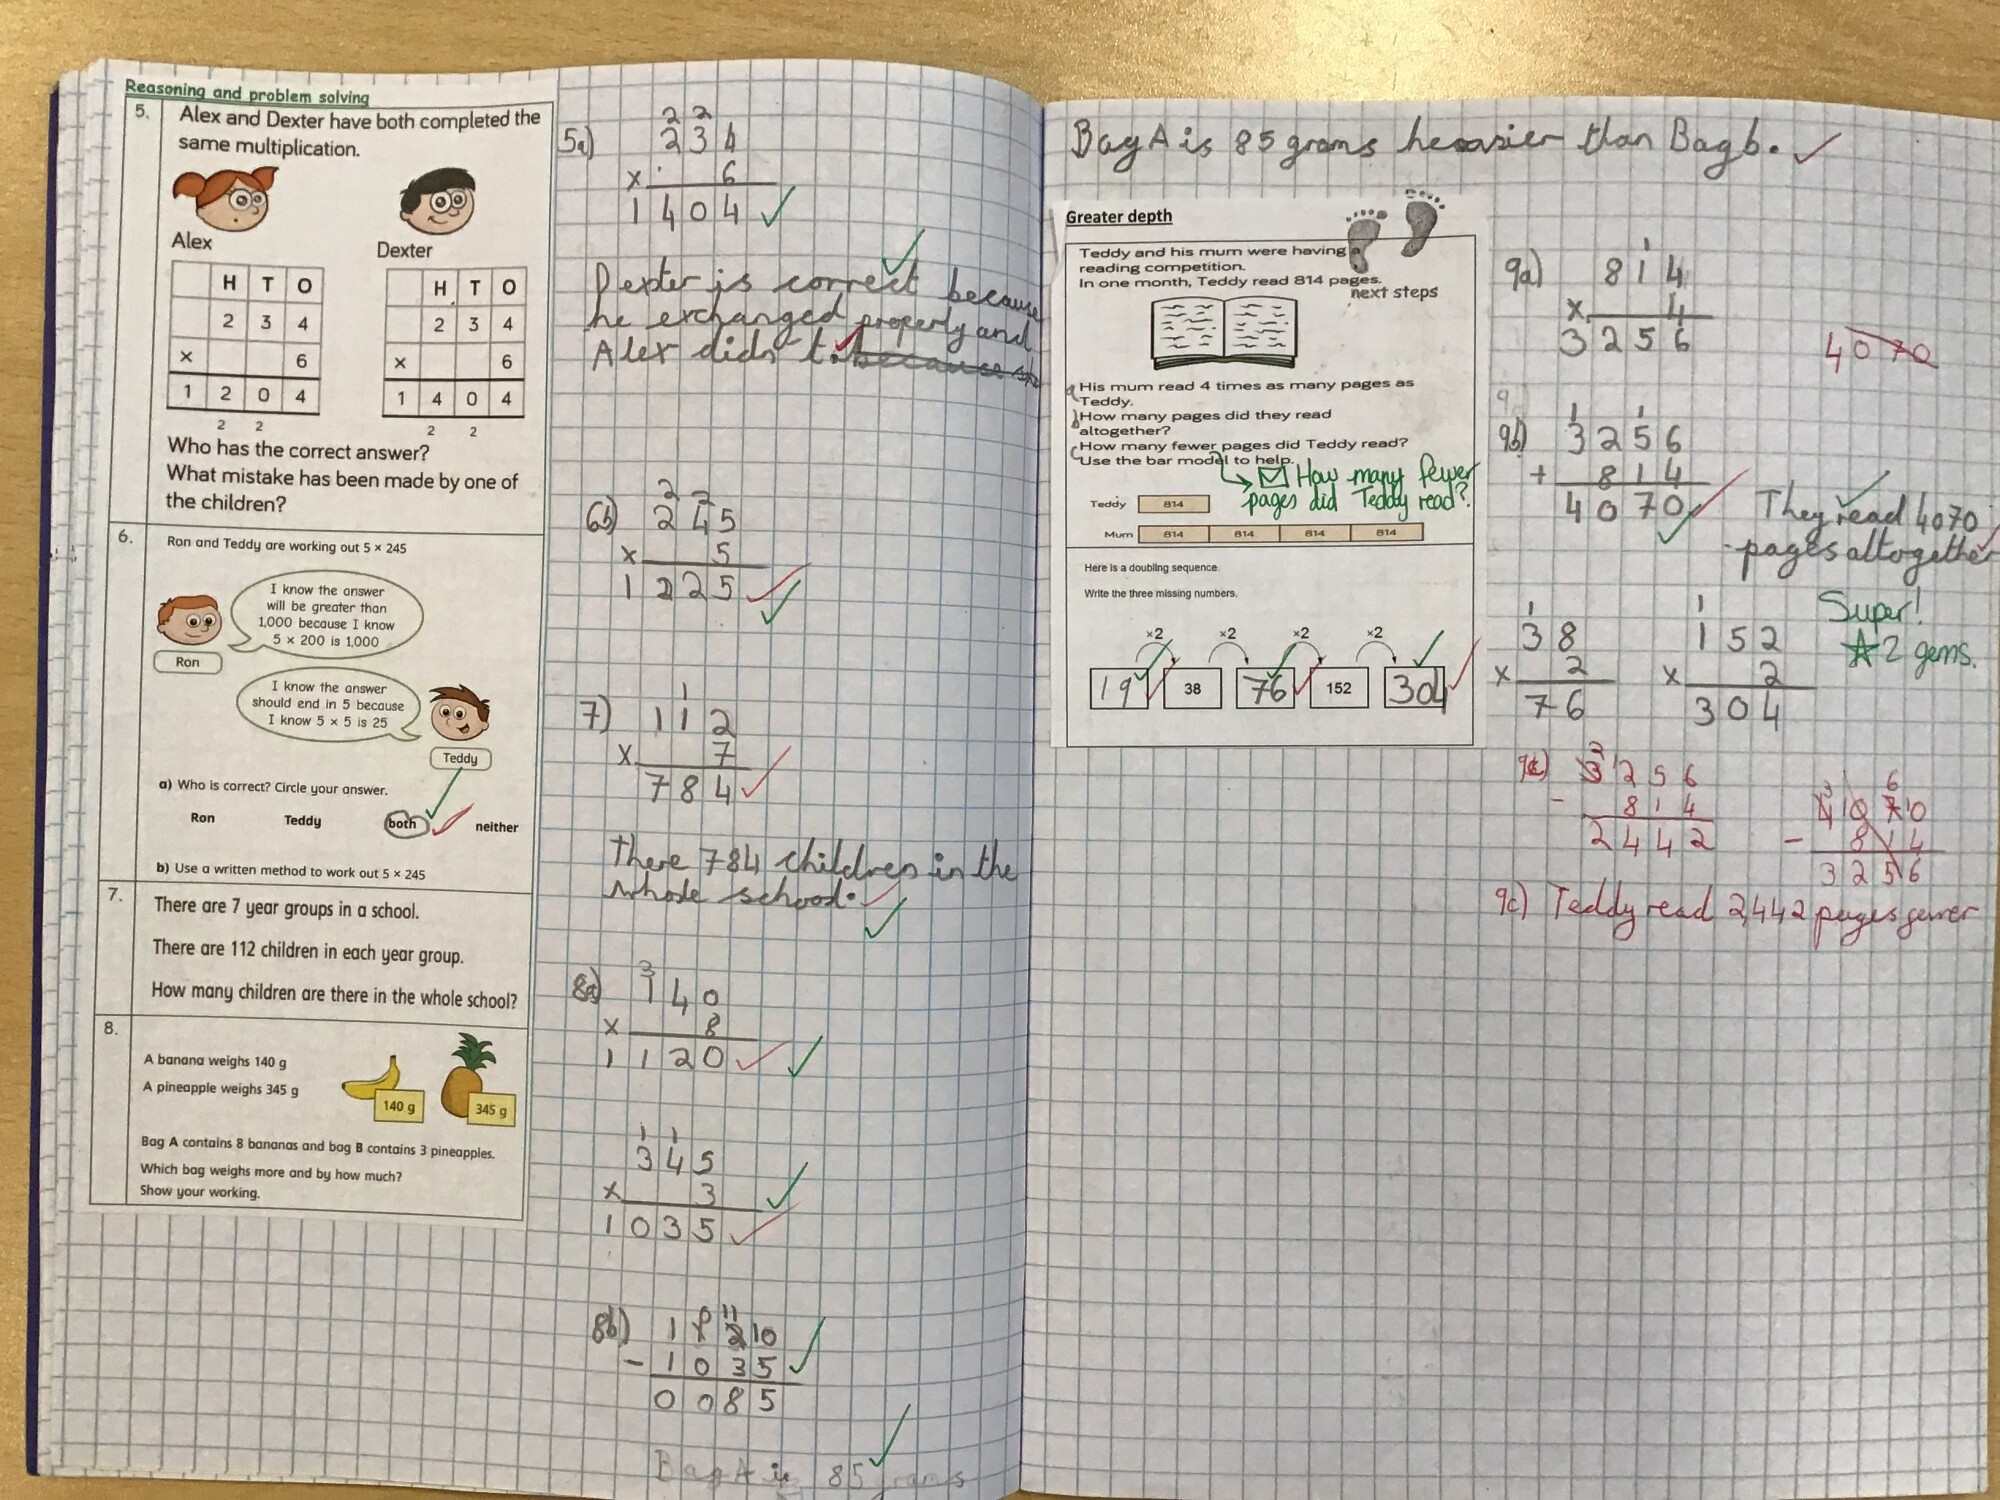 Reasoning and problem solving
5.
Alex and Dexter have both completed the
same multiplication.
Alex
Dexter
H T O
2 3 4
× 6
1 2 0 4
2 2
H T O
2 3 4
× 6
1 4 0 4
2 2
Who has the correct answer?
What mistake has been made by one of
the children?
6.
Ron and Teddy are working out 5 × 245
I know the answer
will be greater than
1,000 because I know
5 × 200 is 1,000
Ron
I know the answer
should end in 5 because
I know 5 × 5 is 25
Teddy
a) Who is correct? Circle your answer.
Ron Teddy both neither
b) Use a written method to work out 5 × 245
7.
There are 7 year groups in a school.
There are 112 children in each year group.
How many children are there in the whole school?
8.
A banana weighs 140 g
A pineapple weighs 345 g
140 g
345 g
Bag A contains 8 bananas and bag B contains 3 pineapples.
Which bag weighs more and by how much?
Show your working.
2 2
5a) 2 3 4
× 6
1 4 0 4
Dexter is correct because
he exchanged properly and
Alex didn't. because
2 2
6b) 2 4 5
× 5
1 2 2 5
1
7) 1 1 2
× 7
7 8 4
There 784 children in the
whole school.
3
8a) 1 4 0
× 8
1 1 2 0
1 1
3 4 5
× 3
1 0 3 5
0 11
8b) 1 1 2 10
- 1 0 3 5
0 0 8 5
Bag A is 85 grams
Bag A is 85 grams heavier than Bag b.
Greater depth
Teddy and his mum were having a
reading competition.
In one month, Teddy read 814 pages.
next steps
a His mum read 4 times as many pages as
Teddy.
b How many pages did they read
altogether?
c How many fewer pages did Teddy read?
Use the bar model to help.
How many fewer
pages did Teddy read?
Teddy 814
Mum 814 814 814 814
Here is a doubling sequence.
Write the three missing numbers.
×2 ×2 ×2 ×2
19 38 76 152 304
1
9a) 8 1 4
× 4
3 2 5 6
4070
9
1 1
9b) 3 2 5 6
+ 8 1 4
4 0 7 0
They read 4070
pages altogether
1
3 8
× 2
7 6
1
1 5 2
× 2
3 0 4
Super!
2 gems.
2
9c) 3 12 5 6
- 8 1 4
2 4 4 2
3 6
4 10 7 10
- 8 1 4
3 2 5 6
9c) Teddy read 2,442 pages fewer